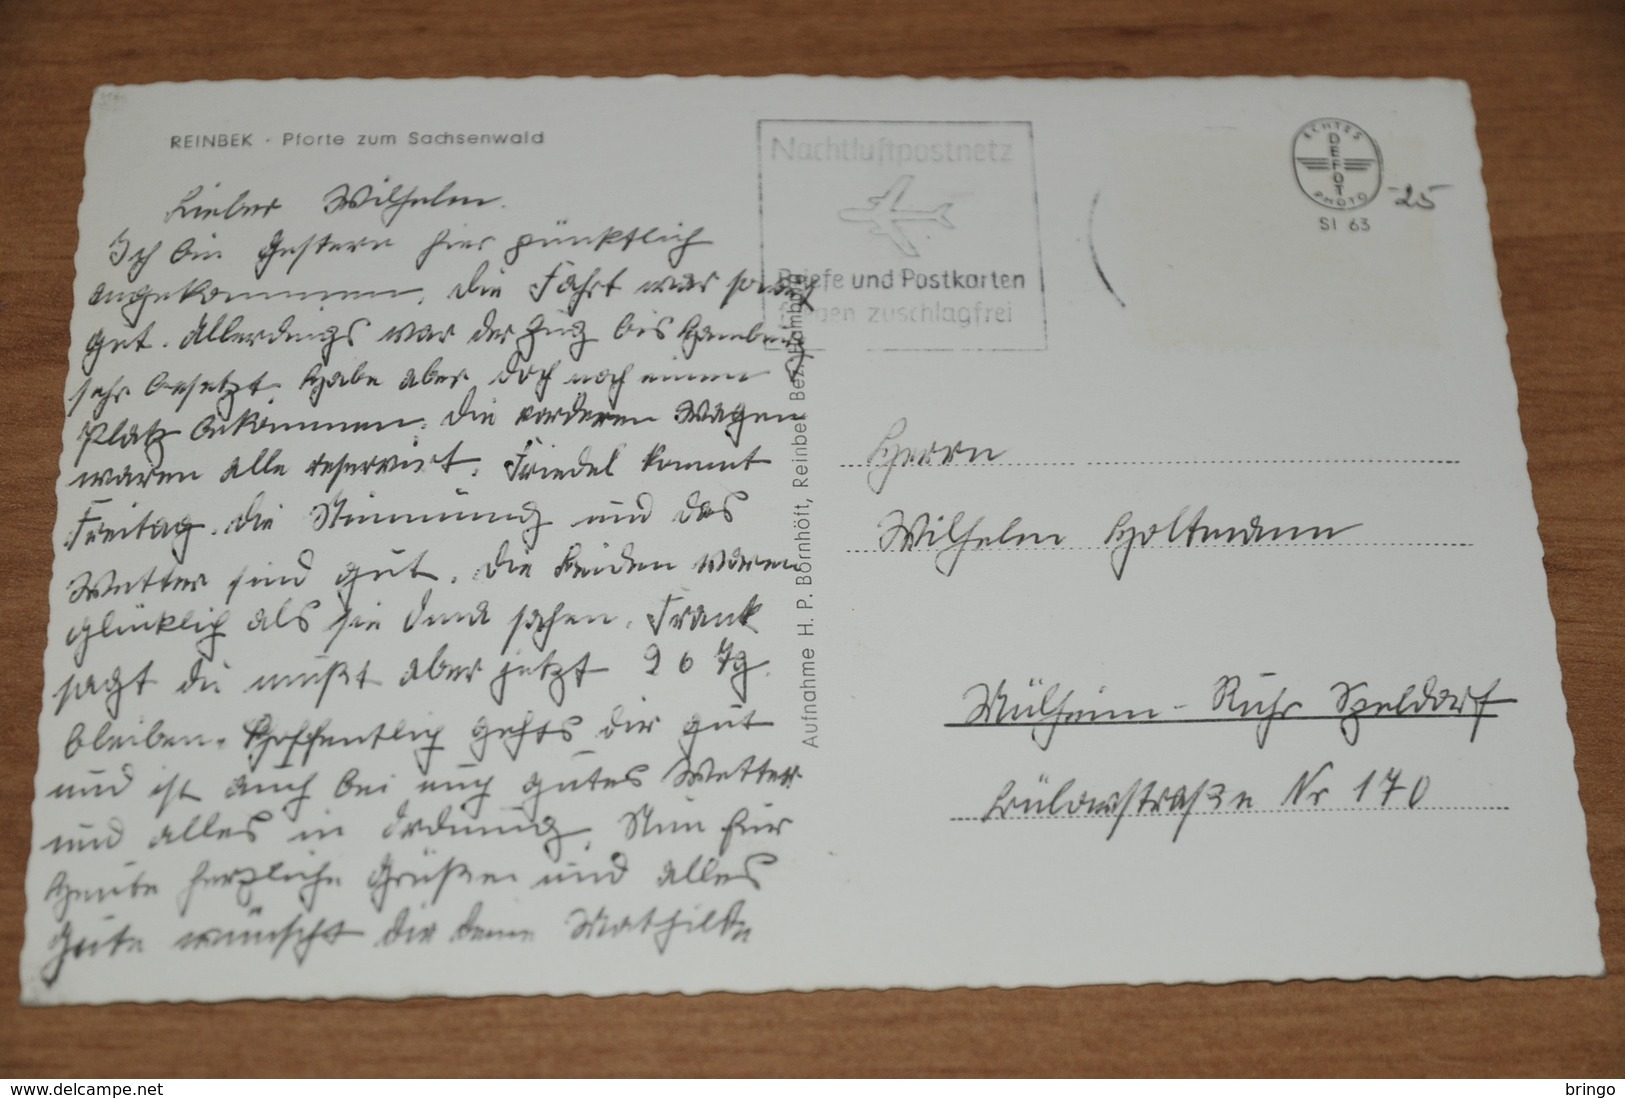 REINBEK · Pforte zum Sachsenwald
Lieber Wilhelm.
Ich bin gestern hier pünktlich
angekommen. Die Fahrt war soweit
gut. Allerdings war der Zug bis Hamburg
sehr besetzt. Habe aber doch noch einen
Platz bekommen. Die vorderen Wagen
waren alle reserviert. Friedel kommt
Freitag. Die Stimmung und das
Wetter sind gut. Die Beiden waren
glücklich als sie Oma sahen. Frank
sagt du mußt aber jetzt 26 Tg.
bleiben. Hoffentlich gehts dir gut
und ist auch bei euch gutes Wetter
und alles in Ordnung. Nun für
Heute herzliche Grüße und alles
Gute wünscht dir deine Mathilde
Aufnahme H. P. Bornhöft, Reinbek Bez. Hamburg
Nachtluftpostnetz
Briefe und Postkarten
fliegen zuschlagfrei
ECHTES
DEPOT
PHOTO
SI 63
-25
Herrn
Wilhelm Holtmann
Mülheim-Ruhr Speldorf
Lrülowstraße Nr 170
www.delcampe.net
bringo